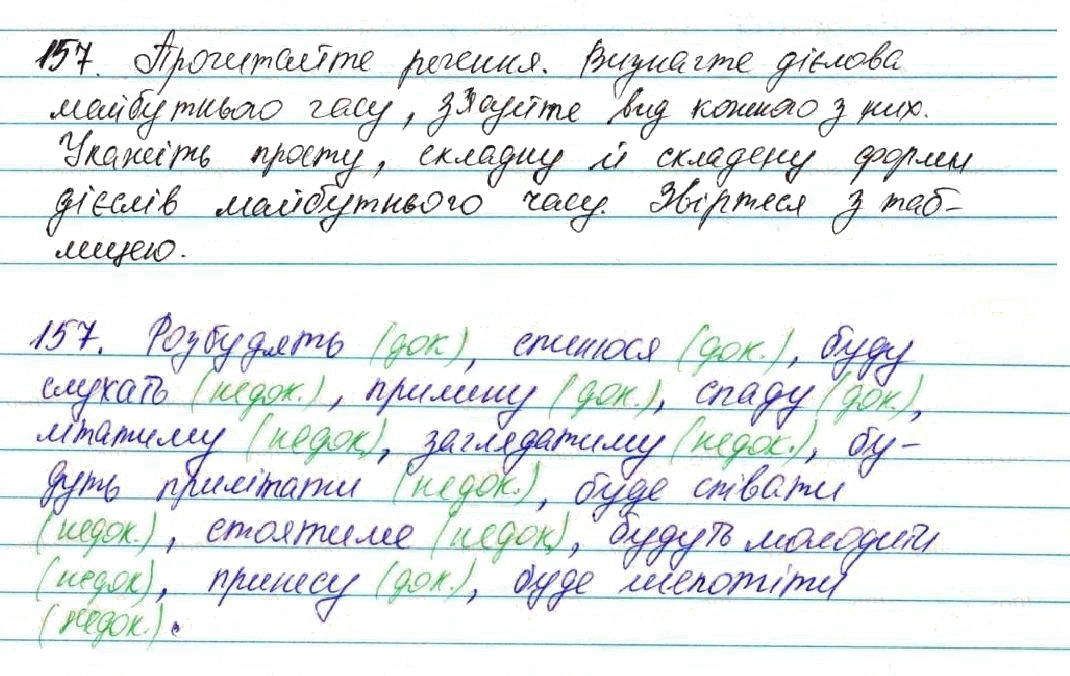 157. Прочитайте речення. Визначте дієслова
майбутнього часу, з'ясуйте вид кожного з них.
Укажіть просту, складну й складену форми
дієслів майбутнього часу. Звіртеся з таб-
лицею.
157. Розбудять (док), спинюся (док.), буду
слухать (недок.), прилину (док.), спаду (док.),
літатиму (недок), заглядатиму (недок.), бу-
дуть прилітати (недок.), буде співати
(недок.), стоятиме (недок), будуть молодити
(недок), принесу (док.), буде шепотіти
(недок.).